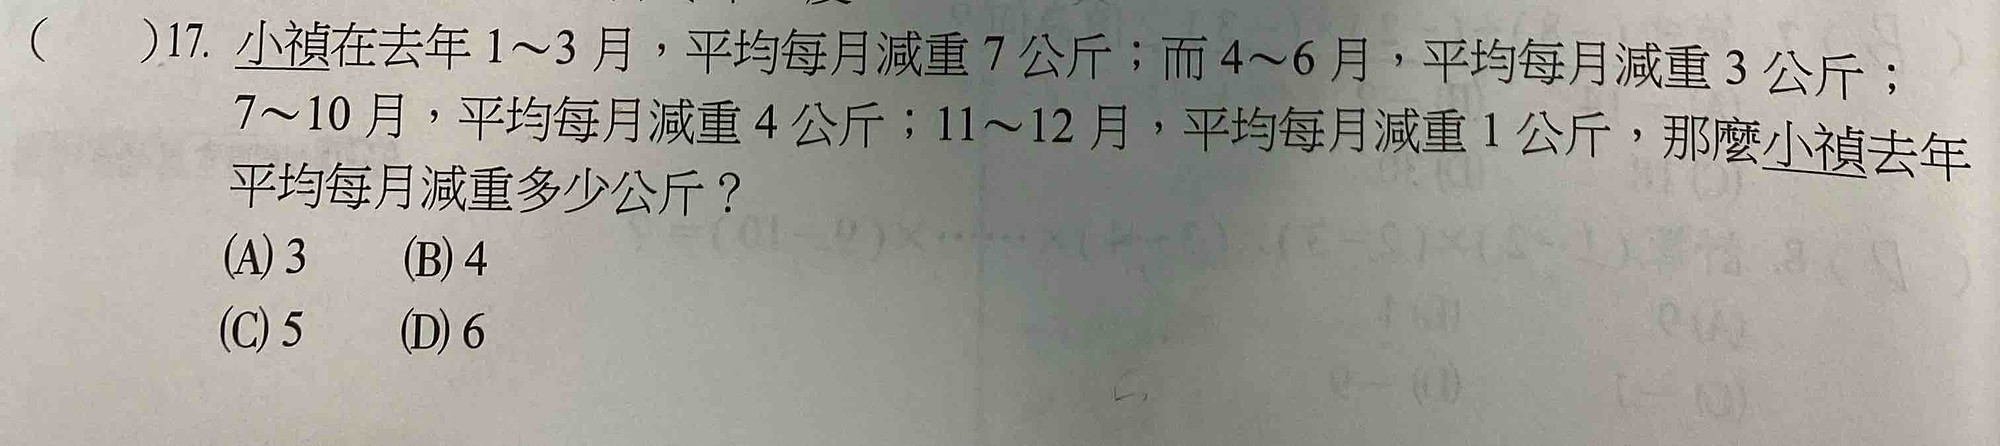 (　　)17. 小禎在去年 1～3 月，平均每月減重 7 公斤；而 4～6 月，平均每月減重 3 公斤；
7～10 月，平均每月減重 4 公斤；11～12 月，平均每月減重 1 公斤，那麼小禎去年
平均每月減重多少公斤？
(A) 3　　(B) 4
(C) 5　　(D) 6